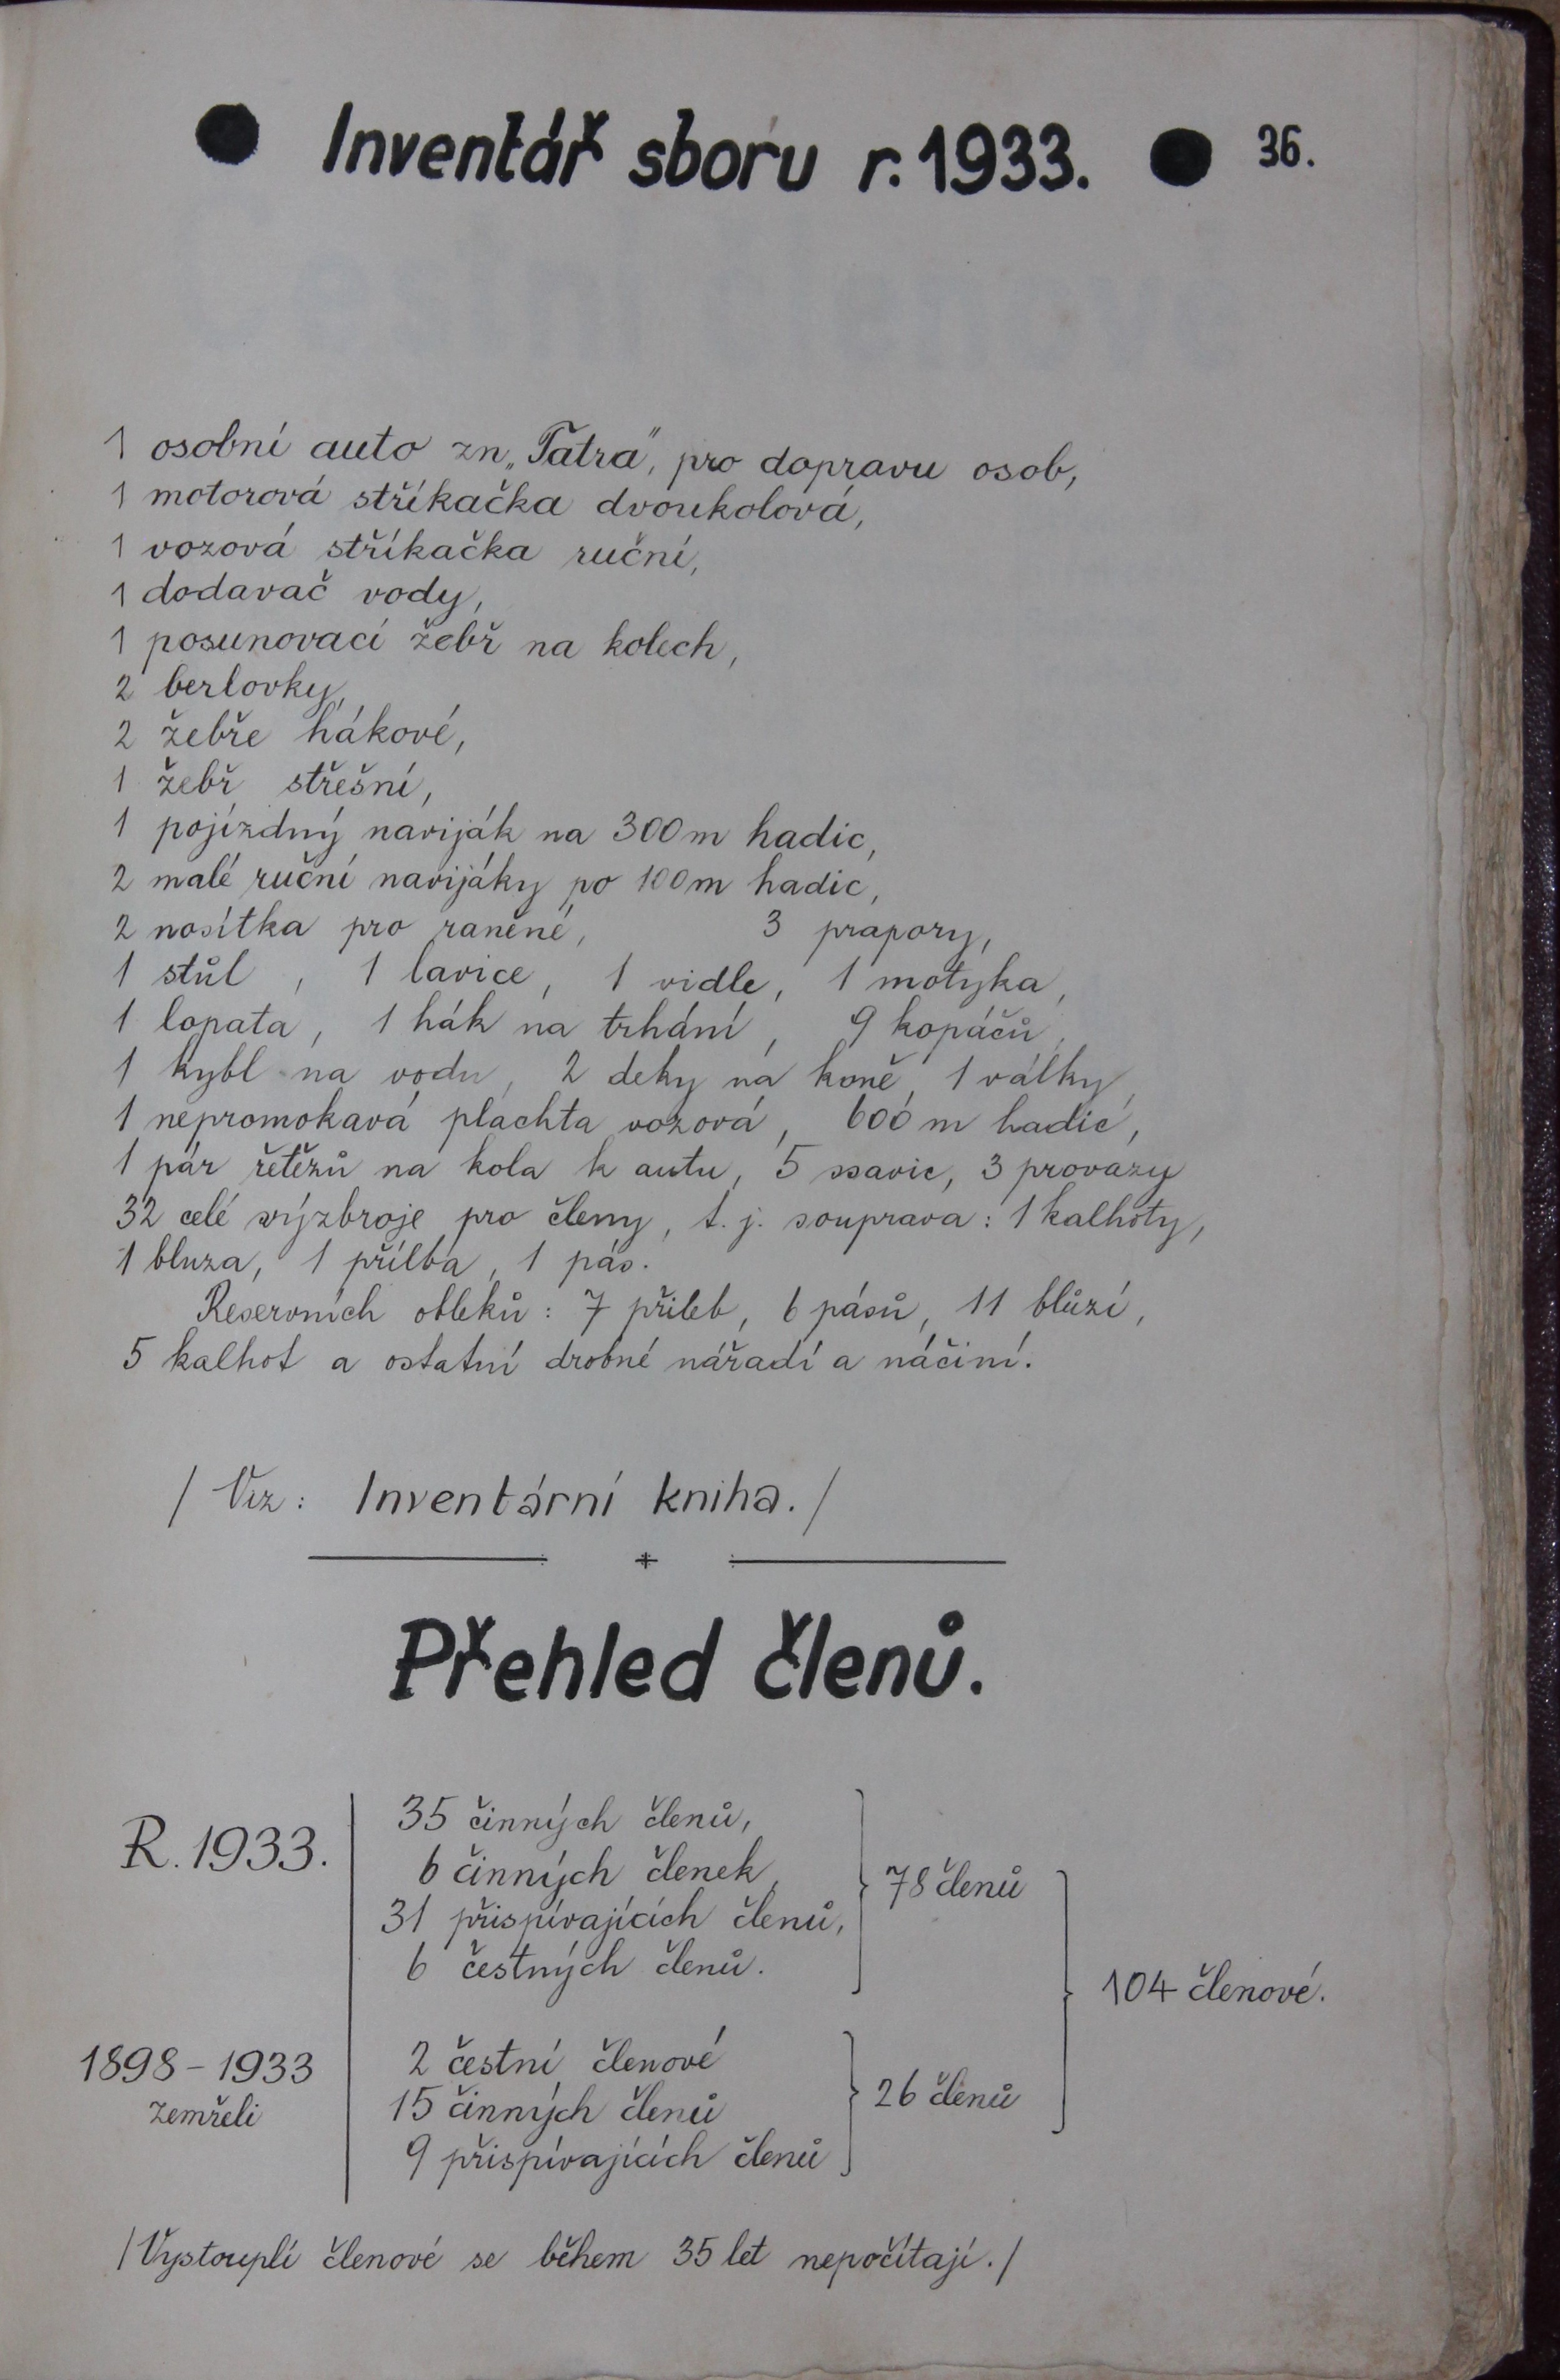 ● Inventář sboru r. 1933. ● 36.
1 osobní auto zn. „Tatra“, pro dopravu osob,
1 motorová stříkačka dvoukolová,
1 vozová stříkačka ruční,
1 dodavač vody,
1 posunovací žebř na kolech,
2 berlovky,
2 žebře hákové,
1 žebř střešní,
1 pojízdný naviják na 300 m hadic,
2 malé ruční navijáky po 100 m hadic,
2 nosítka pro raněné, 3 prapory,
1 stůl, 1 lavice, 1 vidle, 1 motyka,
1 lopata, 1 hák na trhání, 9 kopáčů,
1 kybl na vodu, 2 deky na koně, 1 války,
1 nepromokavá plachta vozová, 600 m hadic,
1 pár řetězů na kola k autu, 5 ssavic, 3 provazy
32 celé výzbroje pro členy, t. j. souprava: 1 kalhoty,
1 bluza, 1 přílba, 1 pás.
Reservních obleků: 7 přileb, 6 pásů, 11 blůzí,
5 kalhot a ostatní drobné nářadí a náčiní.
/ Viz: Inventární kniha. /
+
Přehled členů.
R. 1933.
35 činných členů,
6 činných členek,
31 přispívajících členů,
6 čestných členů.
78 členů
1898 – 1933
zemřeli
2 čestní členové
15 činných členů
9 přispívajících členů
26 členů
104 členové.
/ Vystouplí členové se během 35 let nepočítají. /